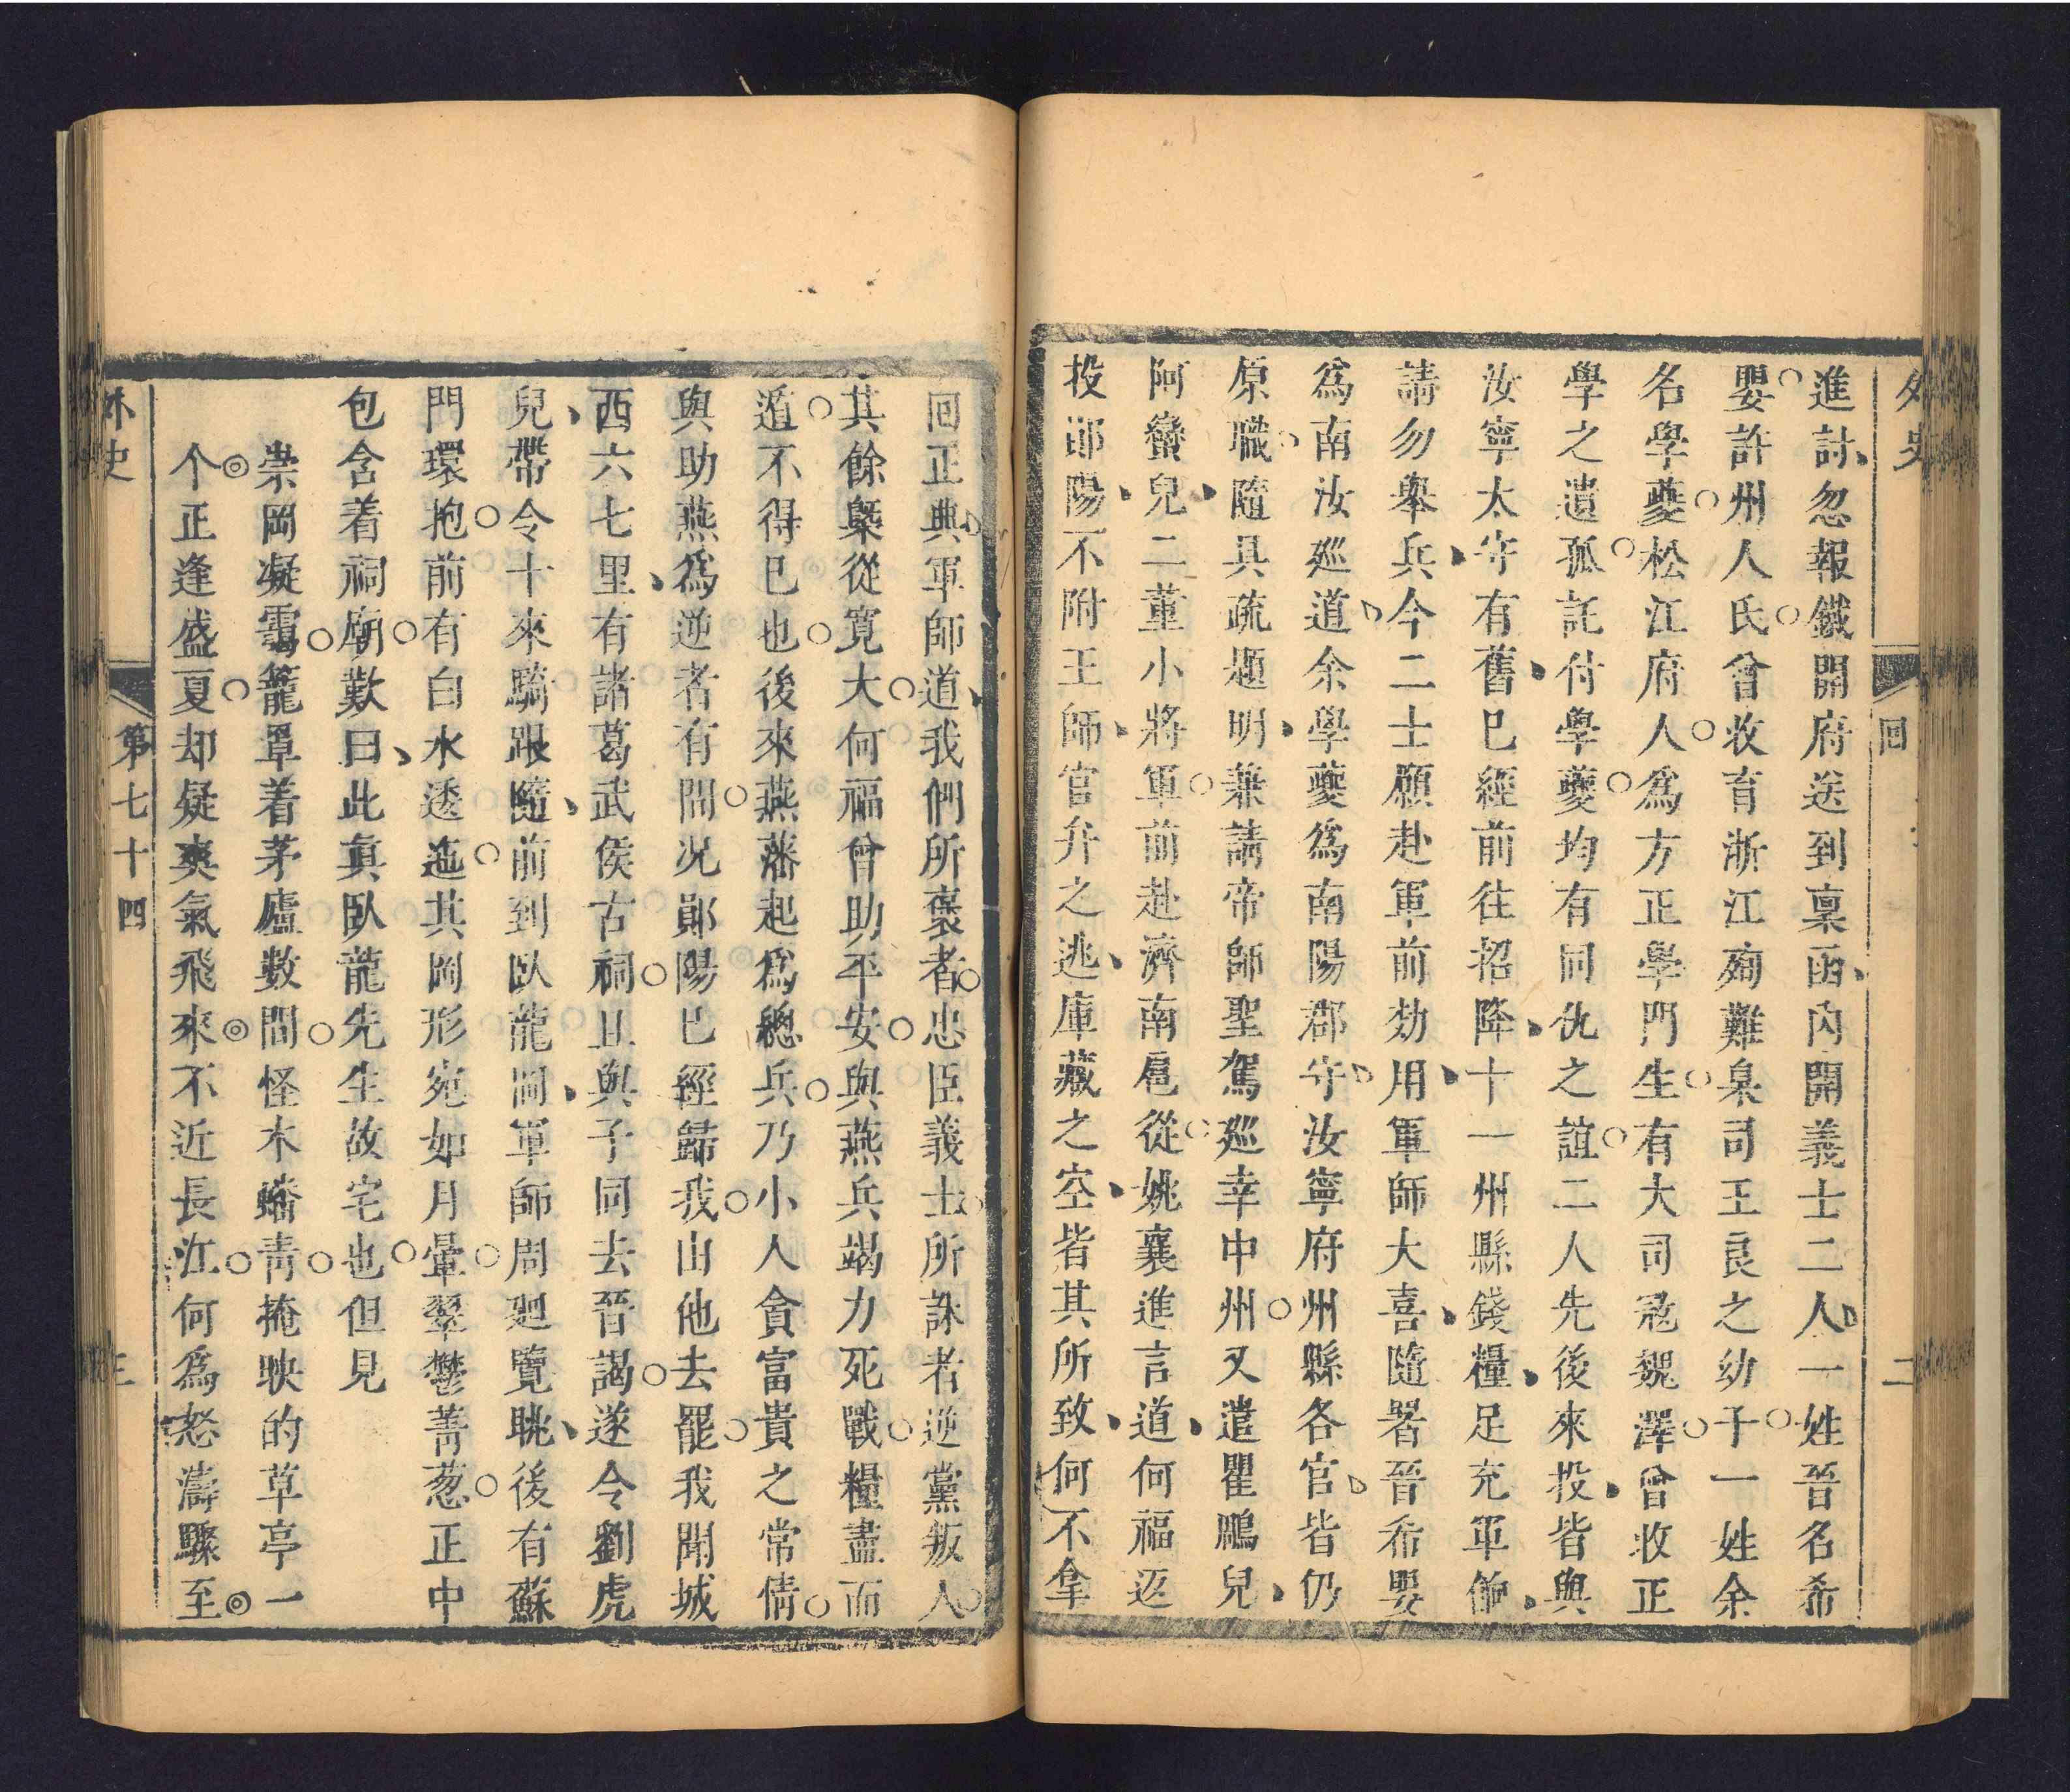 外史
回
二
進討忽報鐵開府送到稟函內開義士二人一姓晉名希
嬰許州人氏曾收育浙江殉難臬司王良之幼子一姓余
名學夔松江府人爲方正學門生有大司冦魏澤曾收正
學之遺孤託付學夔均有同仇之誼二人先後來投皆與
汝寧太守有舊巳經前往招降十一州縣錢糧足充軍餉
請勿舉兵今二士願赴軍前効用軍師大喜隨署晉希嬰
爲南汝巡道余學夔爲南陽郡守汝寧府州縣各官皆仍
原職隨具疏題明兼請帝師聖駕巡幸中州又遣瞿鵰兒
阿蠻兒二董小將軍前赴濟南扈從姚襄進言道何福返
投鄖陽不附王師官弁之逃庫藏之空皆其所致何不拿
回正典軍師道我們所褒者忠臣義士所誅者逆黨叛人
其餘槩從寛大何福曾助平安與燕兵竭力死戰糧盡而
遁不得巳也後來燕藩起爲總兵乃小人貪富貴之常情
與助燕爲逆者有間况鄖陽巳經歸我由他去罷我聞城
西六七里有諸葛武侯古祠且與子同去晉謁遂令劉虎
兒帶令十來騎跟隨前到臥龍岡軍師周廻覽眺後有蘇
門環抱前有白水逶迤其岡形宛如月暈翠鬱菁葱正中
包含着祠廟歎曰此真臥龍先生故宅也但見
崇岡凝靄籠罩着茅廬數間怪木蟠青掩映的草亭一
个正逢盛夏却疑爽氣飛來不近長江何爲怒濤驟至
外史
第七十四
三